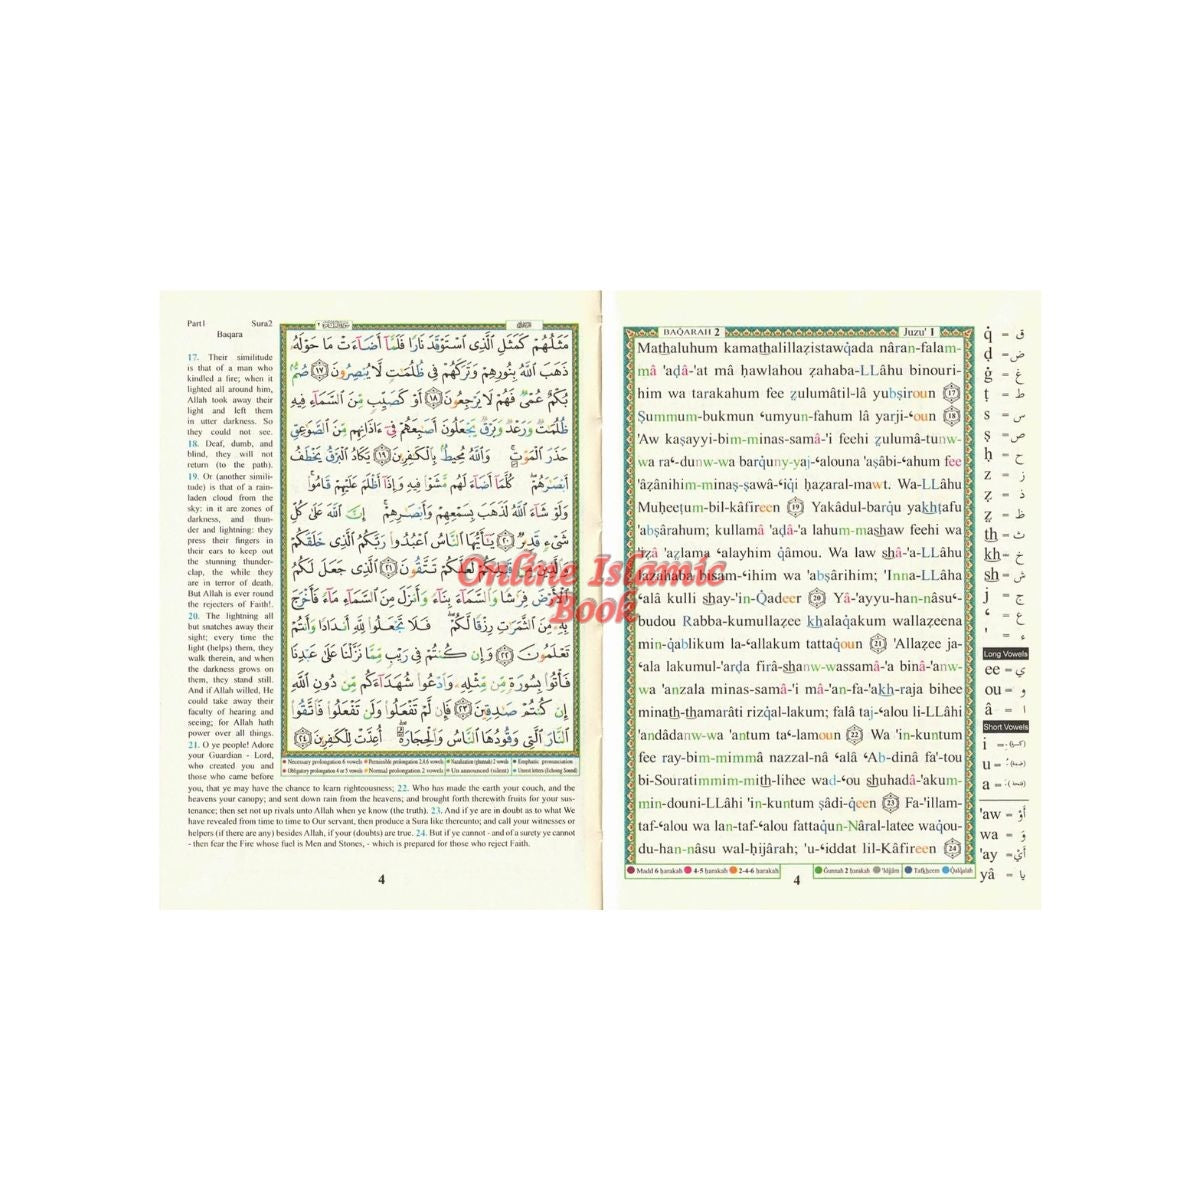 Part1 Sura2
Baqara
17. Their similitude
is that of a man who
kindled a fire; when it
lighted all around him,
Allah took away their
light and left them
in utter darkness. So
they could not see.
18. Deaf, dumb, and
blind, they will not
return (to the path).
19. Or (another simili-
tude) is that of a rain-
laden cloud from the
sky: in it are zones of
darkness, and thun-
der and lightning: they
press their fingers in
their ears to keep out
the stunning thunder-
clap, the while they
are in terror of death.
But Allah is ever round
the rejecters of Faith!.
20. The lightning all
but snatches away their
sight; every time the
light (helps) them, they
walk therein, and when
the darkness grows on
them, they stand still.
And if Allah willed, He
could take away their
faculty of hearing and
seeing; for Allah hath
power over all things.
21. O ye people! Adore
your Guardian - Lord,
who created you and
those who came before
you, that ye may have the chance to learn righteousness; 22. Who has made the earth your couch, and the
heavens your canopy; and sent down rain from the heavens; and brought forth therewith fruits for your sus-
tenance; then set not up rivals unto Allah when ye know (the truth). 23. And if ye are in doubt as to what We
have revealed from time to time to Our servant, then produce a Sura like thereunto; and call your witnesses or
helpers (if there are any) besides Allah, if your (doubts) are true. 24. But if ye cannot - and of a surety ye cannot
- then fear the Fire whose fuel is Men and Stones, - which is prepared for those who reject Faith.
مَثَلُهُمْ كَمَثَلِ ٱلَّذِى ٱسْتَوْقَدَ نَارًا فَلَمَّآ أَضَآءَتْ مَا حَوْلَهُۥ
ذَهَبَ ٱللَّهُ بِنُورِهِمْ وَتَرَكَهُمْ فِى ظُلُمَٰتٍ لَّا يُبْصِرُونَ ١٧ صُمٌّۢ
بُكْمٌ عُمْىٌ فَهُمْ لَا يَرْجِعُونَ ١٨ أَوْ كَصَيِّبٍ مِّنَ ٱلسَّمَآءِ فِيهِ
ظُلُمَٰتٌ وَرَعْدٌ وَبَرْقٌ يَجْعَلُونَ أَصَٰبِعَهُمْ فِىٓ ءَاذَانِهِم مِّنَ ٱلصَّوَٰعِقِ
حَذَرَ ٱلْمَوْتِ ۚ وَٱللَّهُ مُحِيطٌۢ بِٱلْكَٰفِرِينَ ١٩ يَكَادُ ٱلْبَرْقُ يَخْطَفُ
أَبْصَٰرَهُمْ ۖ كُلَّمَآ أَضَآءَ لَهُم مَّشَوْا۟ فِيهِ وَإِذَآ أَظْلَمَ عَلَيْهِمْ قَامُوا۟ ۚ
وَلَوْ شَآءَ ٱللَّهُ لَذَهَبَ بِسَمْعِهِمْ وَأَبْصَٰرِهِمْ ۚ إِنَّ ٱللَّهَ عَلَىٰ كُلِّ
شَىْءٍ قَدِيرٌ ٢٠ يَٰٓأَيُّهَا ٱلنَّاسُ ٱعْبُدُوا۟ رَبَّكُمُ ٱلَّذِى خَلَقَكُمْ
وَٱلَّذِينَ مِن قَبْلِكُمْ لَعَلَّكُمْ تَتَّقُونَ ٢١ ٱلَّذِى جَعَلَ لَكُمُ
ٱلْأَرْضَ فِرَٰشًا وَٱلسَّمَآءَ بِنَآءً وَأَنزَلَ مِنَ ٱلسَّمَآءِ مَآءً فَأَخْرَجَ
بِهِۦ مِنَ ٱلثَّمَرَٰتِ رِزْقًا لَّكُمْ ۖ فَلَا تَجْعَلُوا۟ لِلَّهِ أَندَادًا وَأَنتُمْ
تَعْلَمُونَ ٢٢ وَإِن كُنتُمْ فِى رَيْبٍ مِّمَّا نَزَّلْنَا عَلَىٰ عَبْدِنَا
فَأْتُوا۟ بِسُورَةٍ مِّن مِّثْلِهِۦ وَٱدْعُوا۟ شُهَدَآءَكُم مِّن دُونِ ٱللَّهِ
إِن كُنتُمْ صَٰدِقِينَ ٢٣ فَإِن لَّمْ تَفْعَلُوا۟ وَلَن تَفْعَلُوا۟ فَٱتَّقُوا۟
ٱلنَّارَ ٱلَّتِى وَقُودُهَا ٱلنَّاسُ وَٱلْحِجَارَةُ ۖ أُعِدَّتْ لِلْكَٰفِرِينَ ٢٤
Necessary prolongation 6 vowels Permissible prolongation 2,4,6 vowels Nazalization (ghunnah) 2 vowels Emphatic pronunciation
Obligatory prolongation 4 or 5 vowels Normal prolongation 2 vowels Un announced (silent) Unrest letters (Echoing Sound)
4
BAQARAH 2 Juzu' 1
Mathaluhum kamathalillaẓistawq̇ada nâran-falam-
mâ 'aḍâ-'at mâ ḥawlahou ẓahaba-LLâhu binouri-
him wa tarakahum fee ẓulumâtil-lâ yubṣiroun 17
Ṣummum-bukmun ʿumyun-fahum lâ yarji-ʿoun 18
'Aw kaṣayyi-bim-minas-samâ-'i feehi ẓulumâ-tunw-
wa raʿ-dunw-wa barq̇uny-yaj-ʿalouna 'aṣâbi-ʿahum fee
'âẓânihim-minaṣ-ṣawâ-ʿiq̇i ḥaẓaral-mawt. Wa-LLâhu
Muḥeeṭum-bil-kâfireen 19 Yakâdul-barq̇u yakhṭafu
'abṣârahum; kullamâ 'aḍâ-'a lahum-mashaw feehi wa
'iẓâ 'aẓlama ʿalayhim q̇âmou. Wa law shâ-'a-LLâhu
laẓahaba bisam-ʿihim wa 'abṣârihim; 'Inna-LLâha
ʿalâ kulli shay-'in-Q̇adeer 20 Yâ-'ayyu-han-nâsuʿ-
budou Rabba-kumullaẓee khalaq̇akum wallaẓeena
min-q̇ablikum la-ʿallakum tattaq̇oun 21 'Allaẓee ja-
ʿala lakumul-'arḍa firâ-shanw-wassamâ-'a binâ-'anw-
wa 'anzala minas-samâ-'i mâ-'an-fa-'akh-raja bihee
minath-thamarâti rizq̇al-lakum; falâ taj-ʿalou li-LLâhi
'andâdanw-wa 'antum taʿ-lamoun 22 Wa 'in-kuntum
fee ray-bim-mimmâ nazzal-nâ ʿalâ ʿAb-dinâ fa'-tou
bi-Souratimmim-mith-lihee wad-ʿou shuhadâ-'akum-
min-douni-LLâhi 'in-kuntum ṣâdi-q̇een 23 Fa-'illam-
taf-ʿalou wa lan-taf-ʿalou fattaq̇un-Nâral-latee waq̇ou-
du-han-nâsu wal-ḥijârah; 'u-ʿiddat lil-Kâfireen 24
Madd 6 ḥarakah 4-5 ḥarakah 2-4-6 ḥarakah Ġunnah 2 ḥarakah 'Idġâm Tafkheem Q̇alq̇alah
4
q̇ = ق
ḍ = ض
ġ = غ
ṭ = ط
s = س
ṣ = ص
ḥ = ح
z = ز
ẓ = ذ
ẓ = ظ
th = ث
kh = خ
sh = ش
j = ج
ʿ = ع
' = ء
Long Vowels
ee = ي
ou = و
â = ا
Short Vowels
i = (كسرة)
u = (ضمة)
a = (فتحة)
'aw = أَوْ
wa = وَ
'ay = أَيْ
yâ = يا
Online Islamic
Book